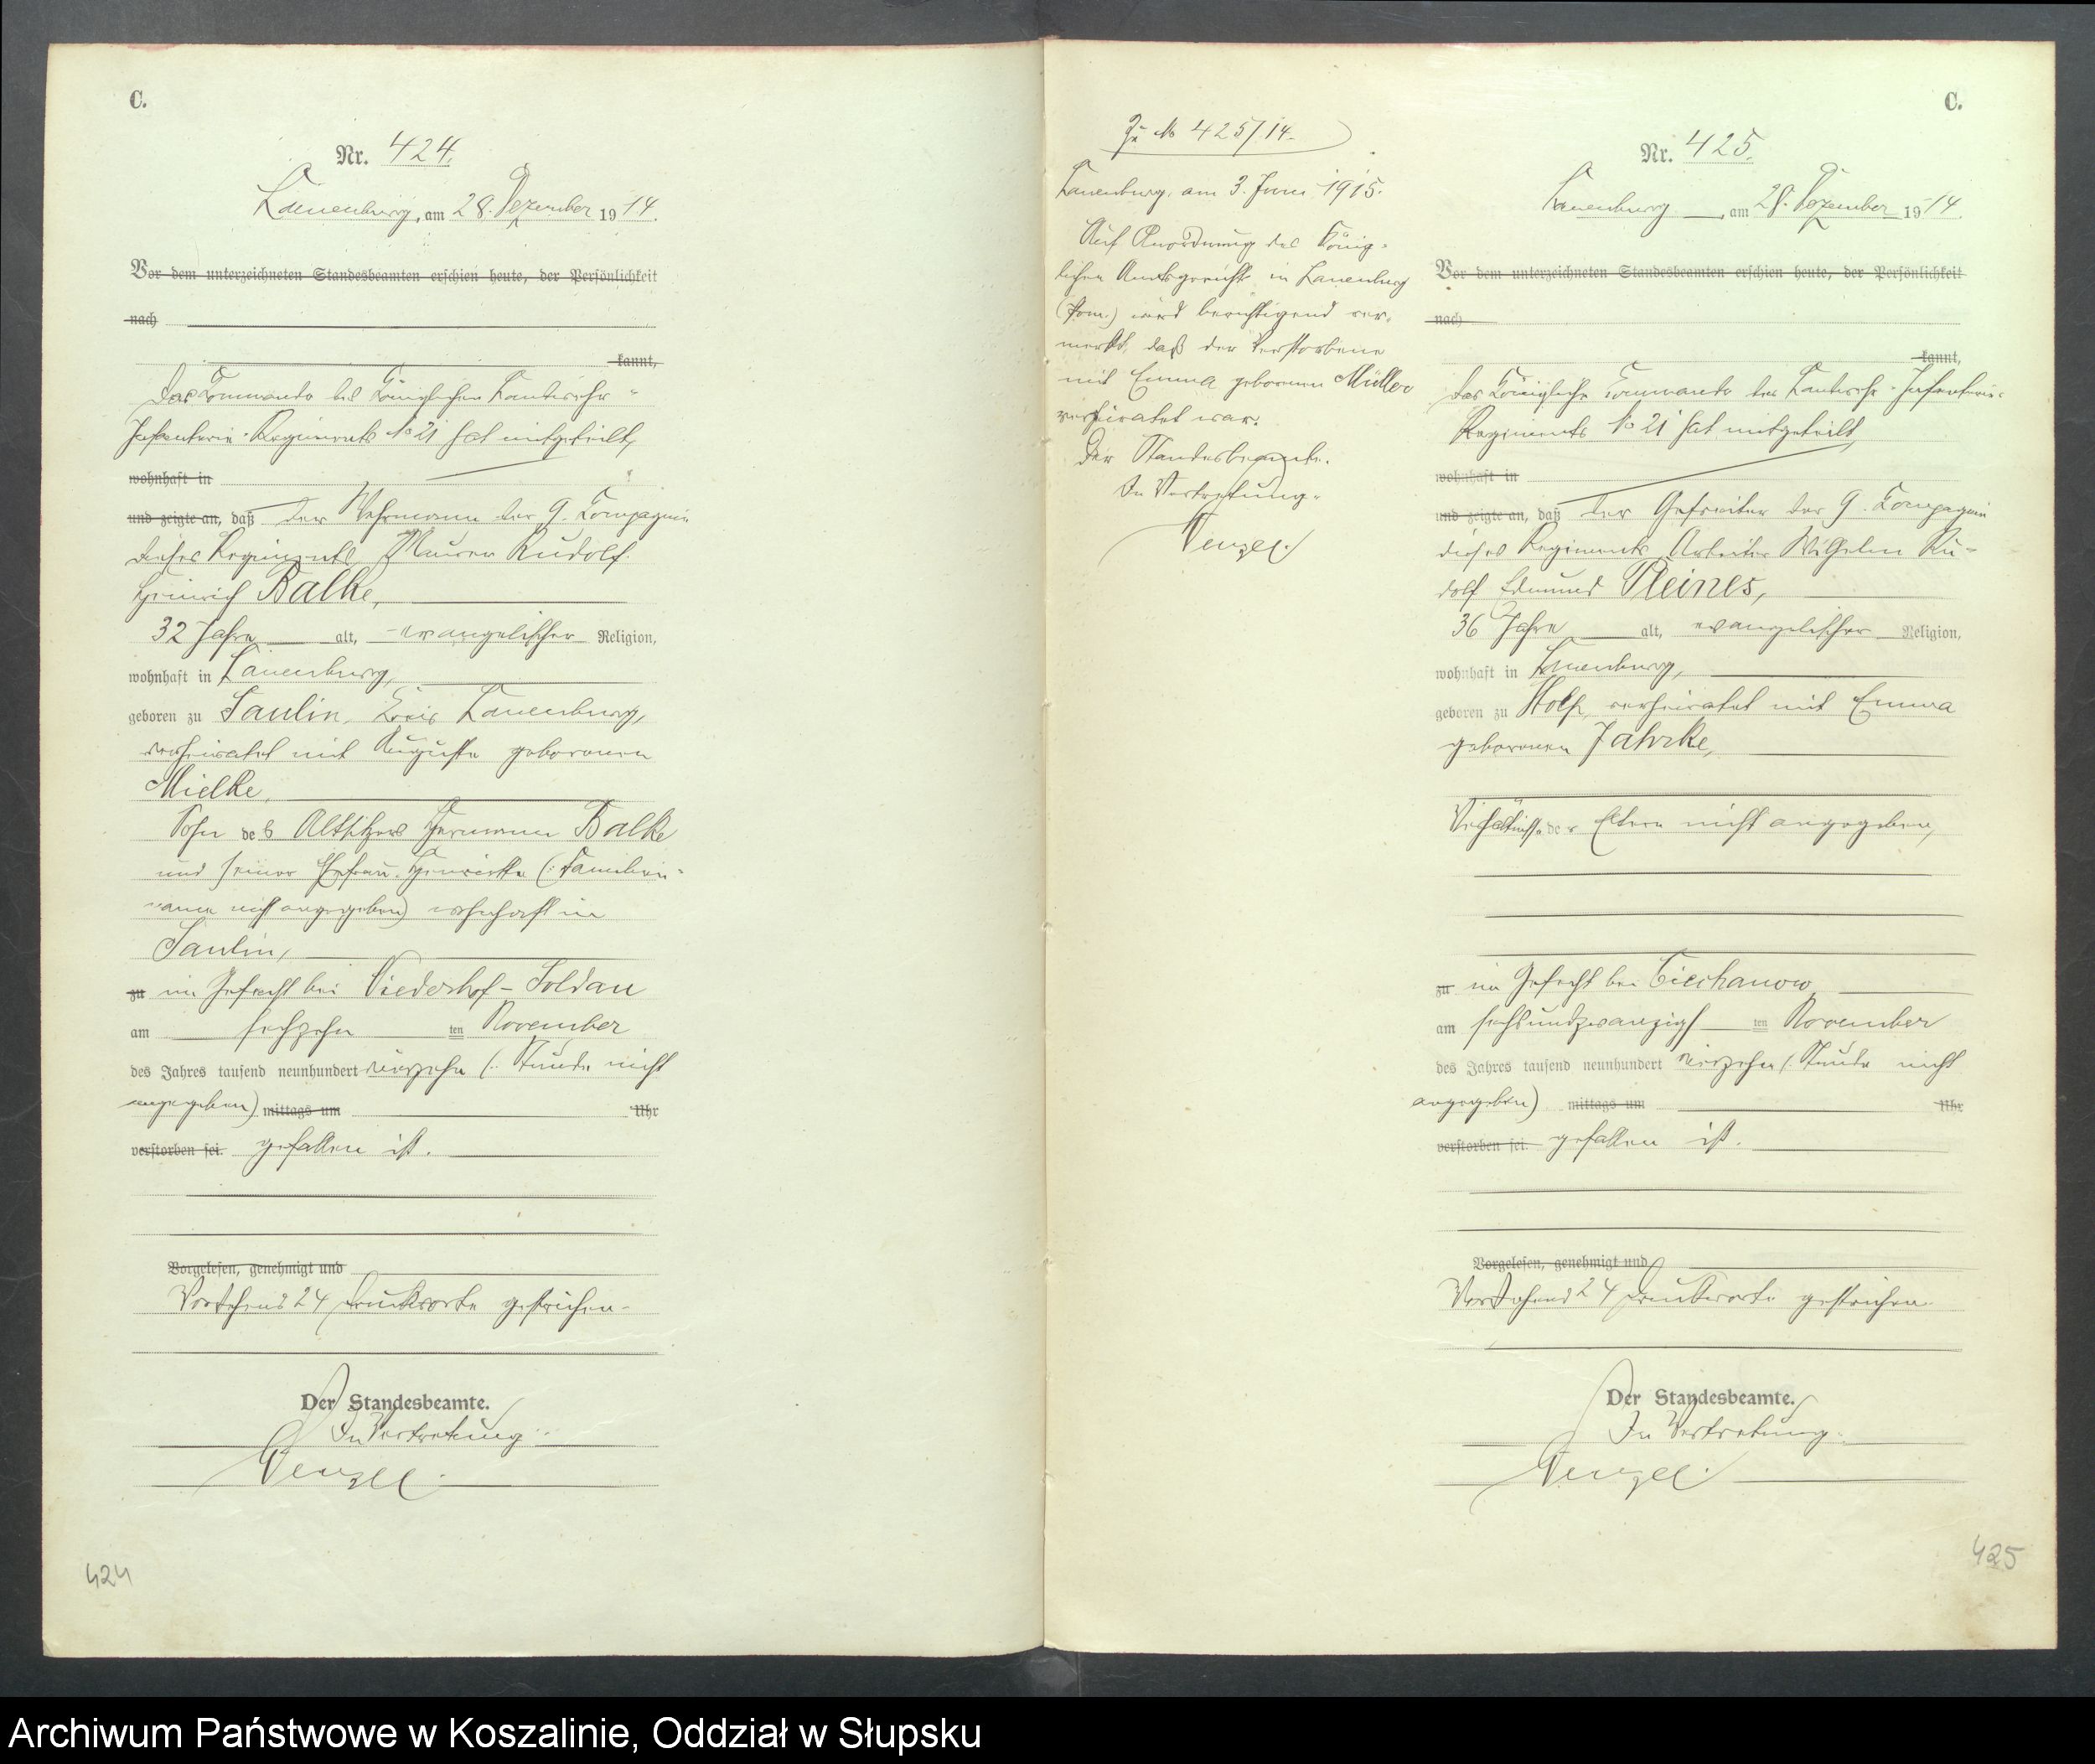 C.
Nr. 424.
Lauenburg, am 28. Dezember 1914.
Vor dem unterzeichneten Standesbeamten erschien heute, der Persönlichkeit
nach
kannt,
Das Kommando des Königlichen Landwehr-
Infanterie-Regiments No 21 hat mitgeteilt,
wohnhaft in
und zeigte an, daß der Wehrmann der 9. Kompagnie
dieses Regiments, Maurer Rudolf
Heinrich Balke,
32 Jahre alt, evangelischer Religion,
wohnhaft in Lauenburg,
geboren zu Saulin, Kreis Lauenburg,
verheiratet mit Auguste geborenen
Mielke,
Sohn des Altsitzers Hermann Balke
und seiner Ehefrau Henriette (: Familien-
name nicht angegeben) wohnhaft in
Saulin,
zu im Gefecht bei Niederhof-Soldau
am sechzehn ten November
des Jahres tausend neunhundert vierzehn (: Stunde nicht
angegeben) mittags um Uhr
verstorben sei. gefallen ist.
Vorgelesen, genehmigt und
Vorstehend 24 Druckworte gestrichen.
Der Standesbeamte.
In Vertretung.
Wenzel.
424
Zu No 425/14.
Lauenburg, am 3. Juni 1915.
Auf Anordnung des König-
lichen Amtsgerichts in Lauenburg
(Pom.) wird berichtigend ver-
merkt, daß der Verstorbene
mit Emma geborenen Müller
verheiratet war.
Der Standesbeamte.
In Vertretung.
Wenzel.
C.
Nr. 425.
Lauenburg, am 28. Dezember 1914.
Vor dem unterzeichneten Standesbeamten erschien heute, der Persönlichkeit
nach
kannt,
Das Königliche Kommando des Landwehr-Infanterie-
Regiments No 21 hat mitgeteilt,
wohnhaft in
und zeigte an, daß der Gefreiter der 9. Kompagnie
dieses Regiments, Arbeiter Wilhelm Ru-
dolf Edmund Pleines,
36 Jahre alt, evangelischer Religion,
wohnhaft in Lauenburg,
geboren zu Stolp, verheiratet mit Emma
geborenen Jahrke,
Verhältnisse der Eltern nicht angegeben,
zu im Gefecht bei Ciechanow
am sechsundzwanzigs ten November
des Jahres tausend neunhundert vierzehn (: Stunde nicht
angegeben) mittags um Uhr
verstorben sei. gefallen ist.
Vorgelesen, genehmigt und
Vorstehend 24 Druckworte gestrichen.
Der Standesbeamte.
In Vertretung.
Wenzel.
425
Archiwum Państwowe w Koszalinie, Oddział w Słupsku